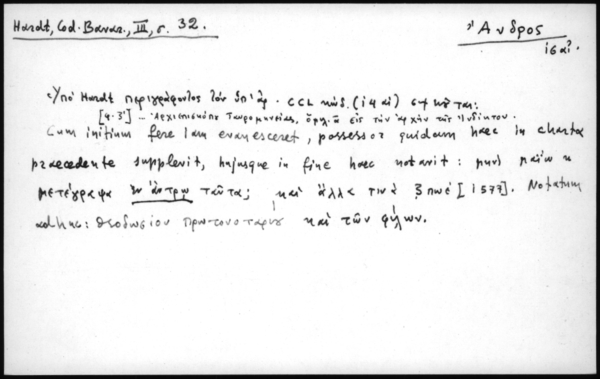 Hardt, Cod. Bavar., III, σ. 32.
Ἄνδρος
ιςαί.
Ὑπὸ Hardt περιγράφοντος τὸν ὑπ' ἀρ. CCL κώδ. (ιςαί)
[φ. 3] — Ἀρχιεπισκόπου Ταυρομενίας, ὁμιλ. εἰς τὴν ἀρχὴν τῆς Ἰνδίκτου.
Cum initium fere iam evanesceret, possessor quidam haec in charta
praecedente supplevit, hujusque in fine haec notavit: μηνὶ μαΐω κ
μετέγραψα ἐν ἄντρω ταῦτα; καὶ ἄλλα τινὰ ζπωέ [1577]. Notatum
adhuc: Θεοδωσίου πρωτονοταρίου καὶ τῶν φίλων.